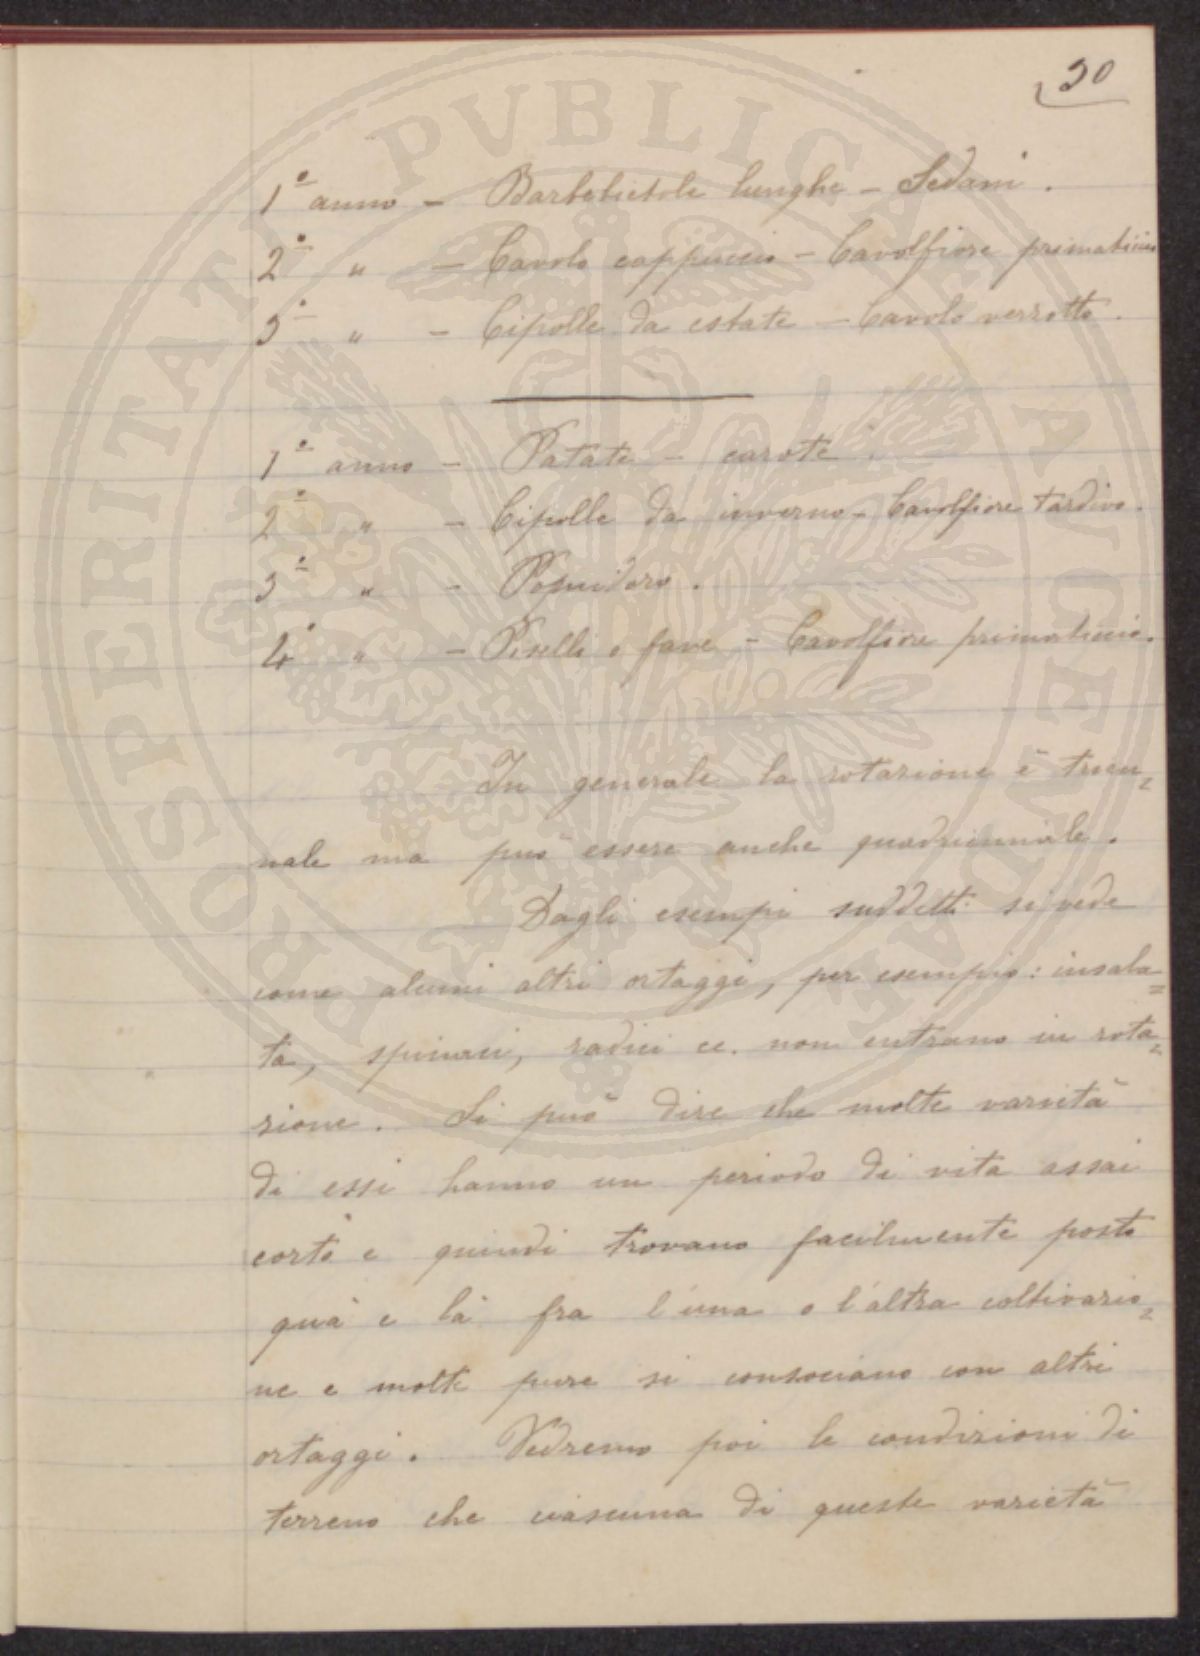 30
1° anno - Barbabietole lunghe - Sedani.
2° " - Cavolo cappuccio - Cavolfiore primaticcio
3° " - Cipolle da estate - Cavolo verzotto.
1° anno - Patate - carote.
2° " - Cipolle da inverno - Cavolfiore tardivo.
3° " - Popudoro.
4° " - Piselli o fave - Cavolfiore primaticcio.
In generale la rotazione è trien=
nale ma può essere anche quadriennale.
Dagli esempi suddetti si vede
come alcuni altri ortaggi, per esempio: insala=
ta, spinaci, radici ec. non entrano in rota=
zione. Si può dire che molte varietà
di essi hanno un periodo di vita assai
corto e quindi trovano facilmente posto
quà e là fra l'una o l'altra coltivazio=
ne e molte pure si consociano con altri
ortaggi. Vedremo poi le condizioni di
terreno che ciascuna di queste varietà
PROSPERITATI PVBLICAE AVGENDAE